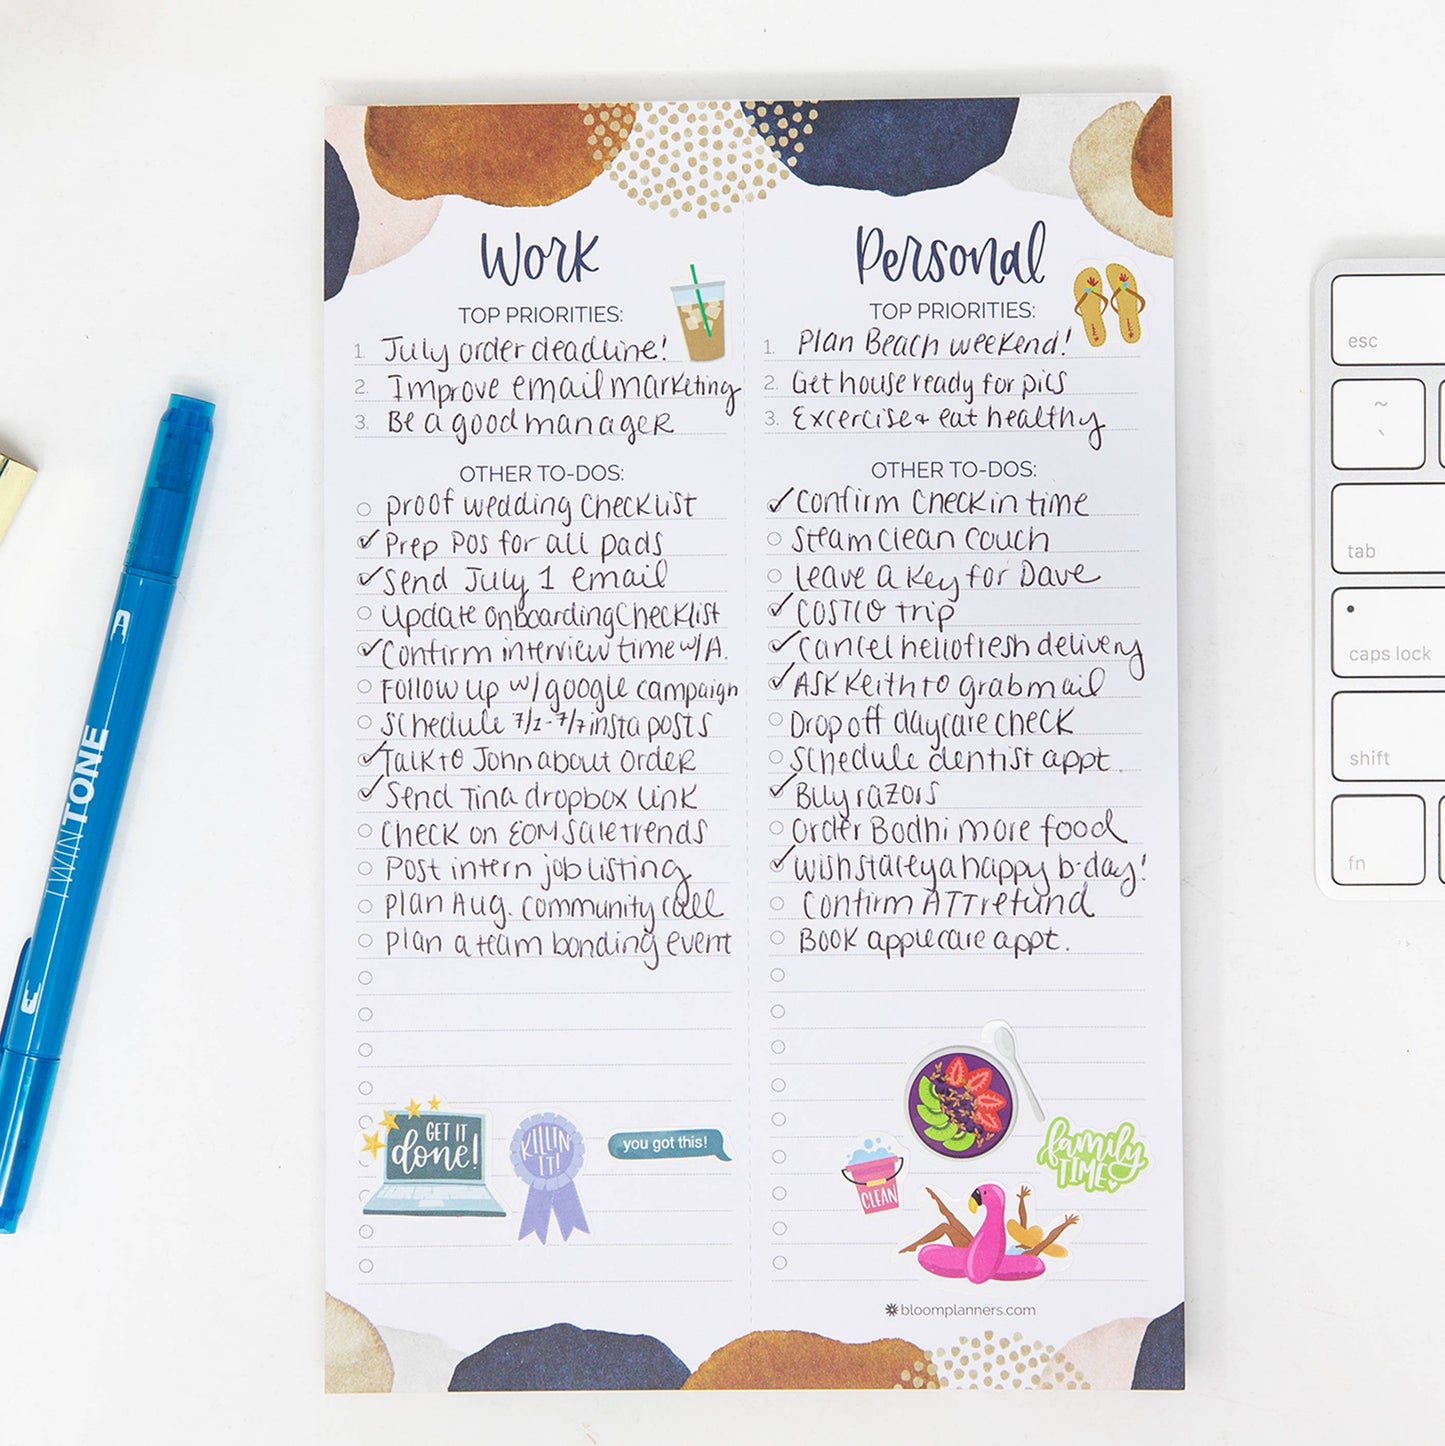 Work
TOP PRIORITIES:
1. July order deadline!
2. Improve email marketing
3. Be a good manager
OTHER TO-DOS:
proof wedding checklist
Prep POs for all pads
Send July 1 email
Update onboarding checklist
Confirm interview time w/A.
Follow up w/ google campaign
Schedule 7/2-7/7 insta posts
Talk to John about order
Send Tina dropbox link
Check on EOM sale trends
Post intern job listing
Plan Aug. community call
Plan a team bonding event
GET IT
done!
KILLIN'
IT!
you got this!
Personal
TOP PRIORITIES:
1. Plan Beach weekend!
2. Get house ready for pics
3. Excercise + eat healthy
OTHER TO-DOS:
Confirm check in time
Steam clean couch
leave a key for Dave
COSTCO trip
Cancel hellofresh delivery
Ask Keith to grab mail
Drop off daycare check
Schedule dentist appt.
Buy razors
Order Bodhi more food
Wish staceya happy b-day!
Confirm ATT refund
Book applecare appt.
family
TIME
CLEAN
bloomplanners.com
TWINTONE
A
esc
~
`
tab
caps lock
shift
fn